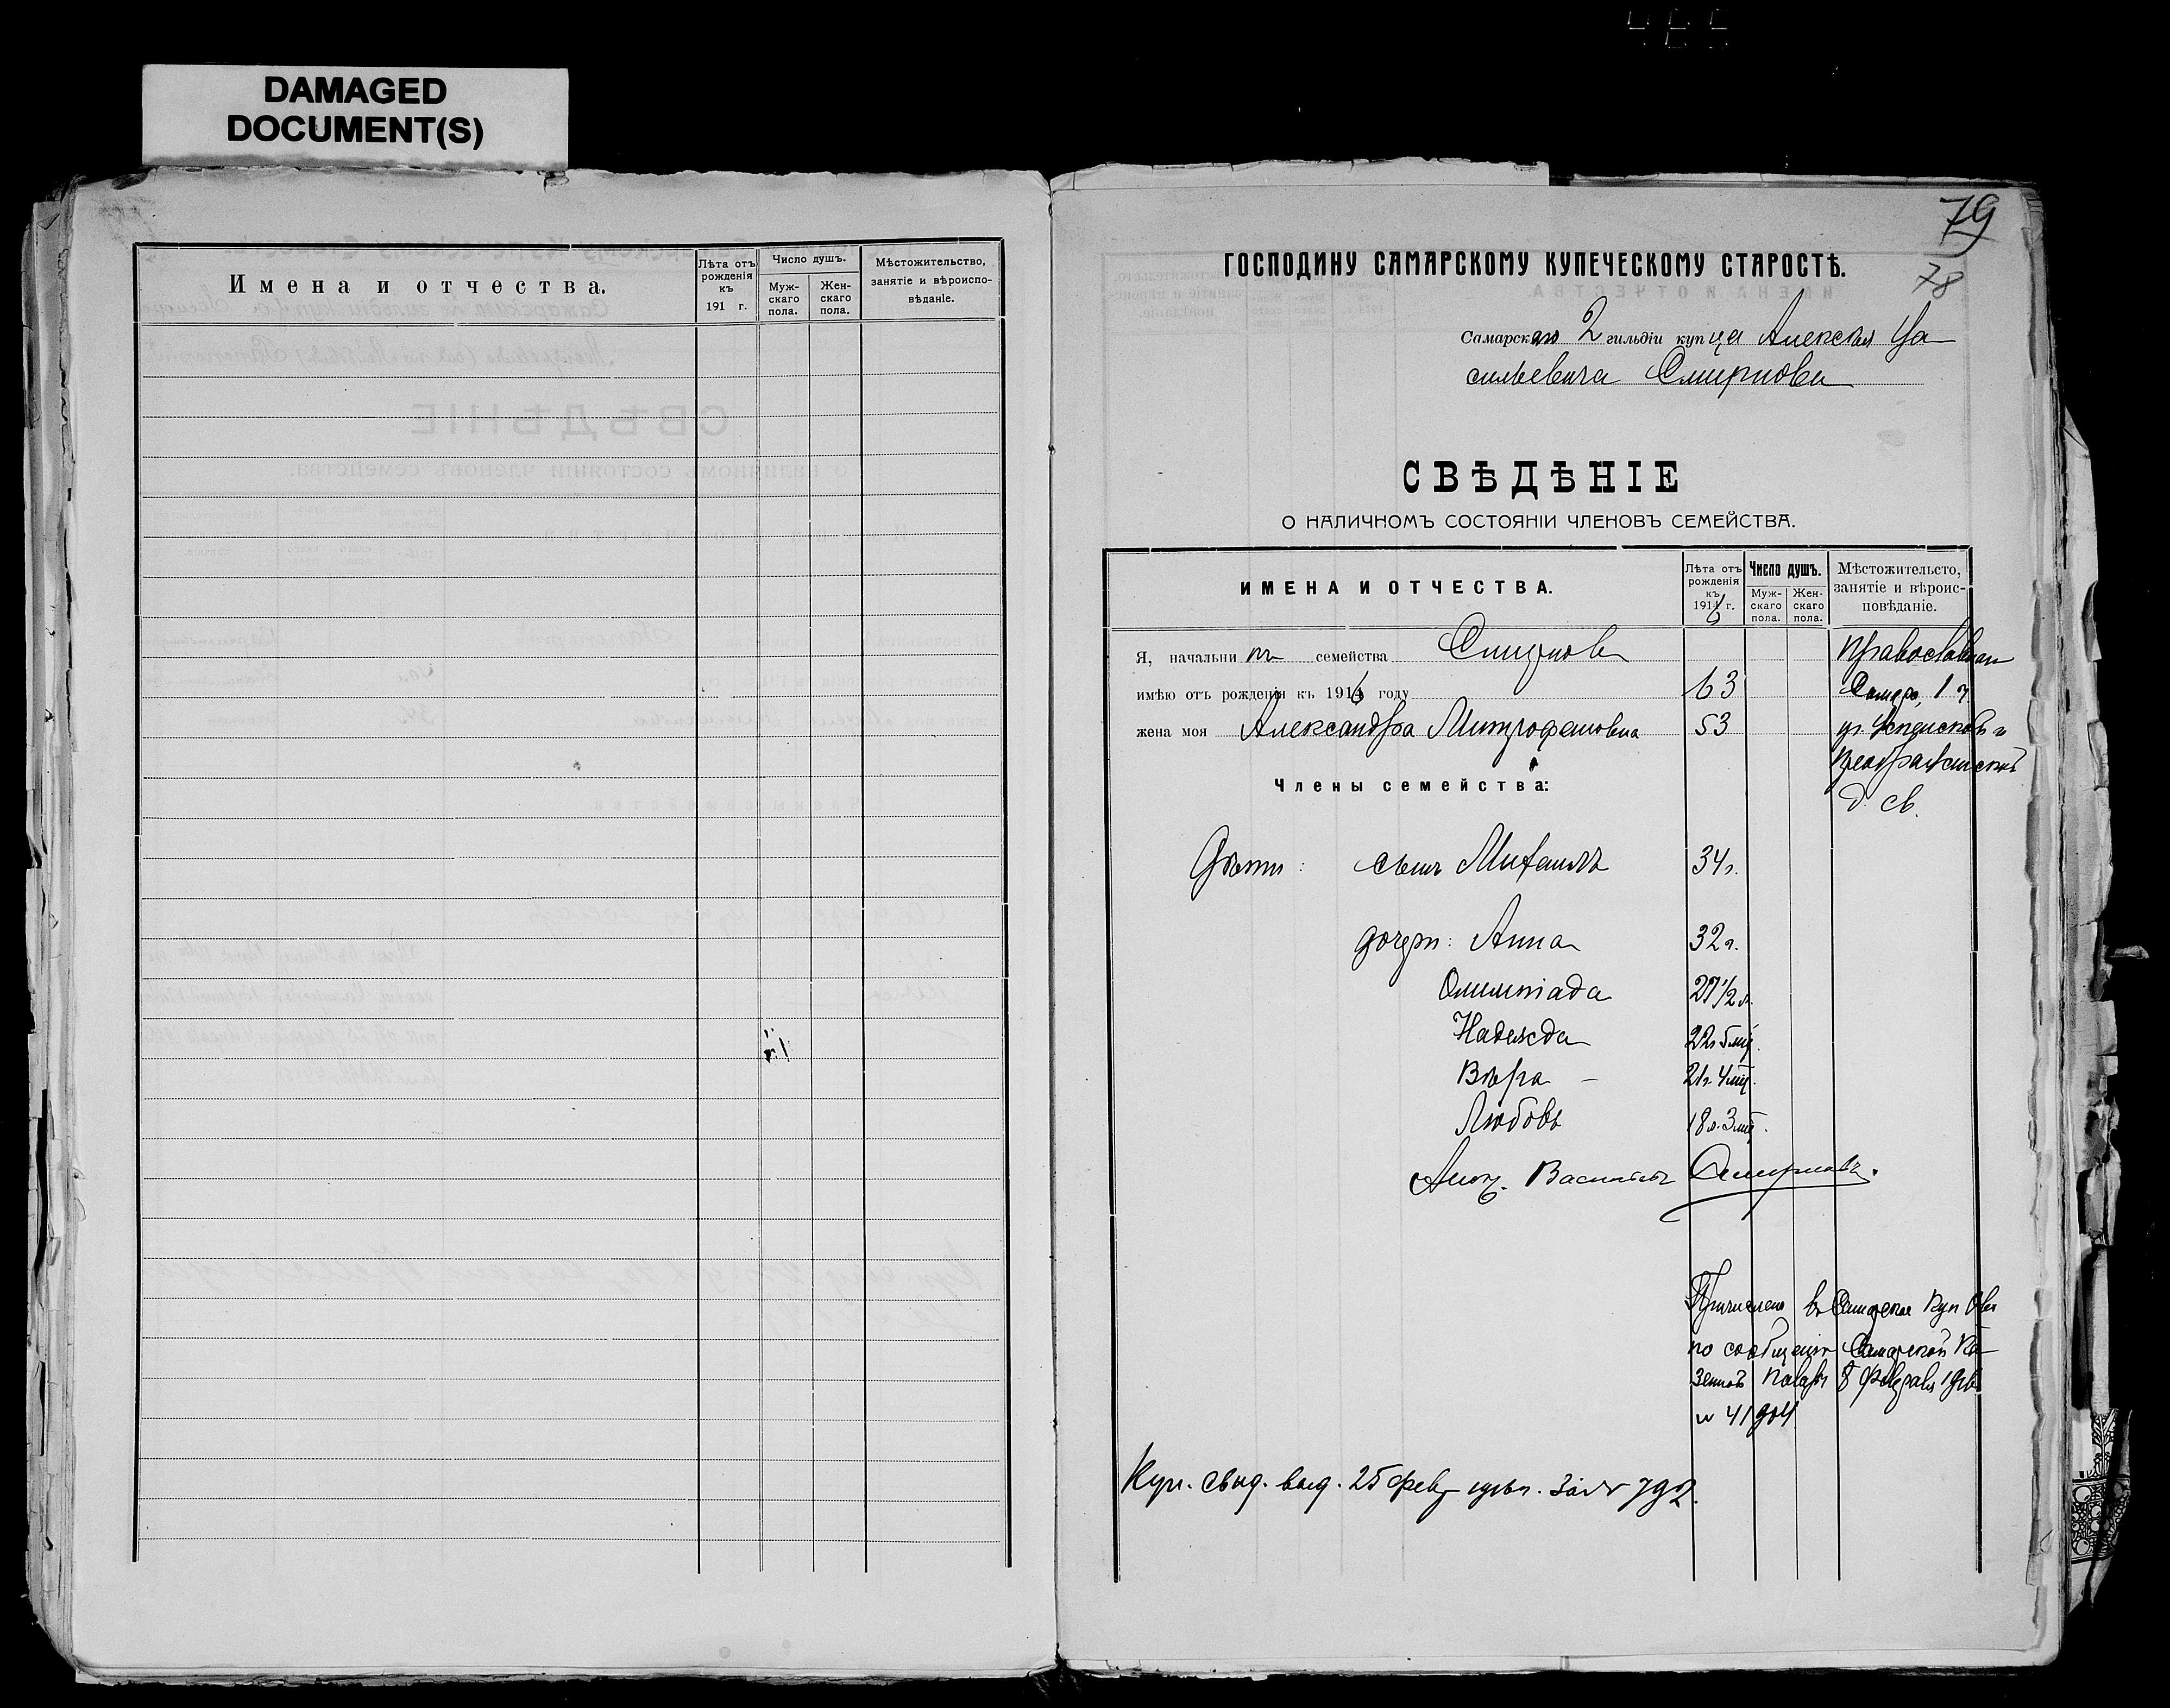 465
DAMAGED
DOCUMENT(S)
Имена и отчества.
Лѣта отъ рожденія къ 191 г.
Число душъ.
Муж-скаго пола.
Жен-скаго пола.
Мѣстожительство, занятіе и вѣроиспо-вѣданіе.
79
78
ГОСПОДИНУ САМАРСКОМУ КУПЕЧЕСКОМУ СТАРОСТѢ.
Самарскаго 2 гильдіи купца Алексѣя Ва
сильевича Смирнова
СВѢДѢНІЕ
О НАЛИЧНОМЪ СОСТОЯНІИ ЧЛЕНОВЪ СЕМЕЙСТВА.
ИМЕНА И ОТЧЕСТВА.
Лѣта отъ рожденія къ 1916 г.
Число душъ.
Муж-скаго пола.
Жен-скаго пола.
Мѣстожительсто, занятіе и вѣроис-повѣданіе.
Я, начальникъ семейства Смирновъ Православнаго
имѣю отъ рожденія къ 1916 году 63 Самара, 1 ч
жена моя Александра Митрофановна 53 уг. Успенской и
Преображенской
Члены семейства:
д. св.
Дѣти: сынъ Михаилъ 34 г.
дочери: Анна 32 г.
Олимпіада 27 1/2 л.
Надежда 22 г. 5 мц.
Вѣра – 21 г. 4 мц.
Любовь 18 л. 3 мц.
Васильевъ Смирновъ.
Причислены въ Самарское Куп О-во
по сообщенію Самарской Ка-
зенной Палаты 8 Февраля 1916
№ 41904
Куп. свид. выд. 25 февр 1916 г. за № 792.